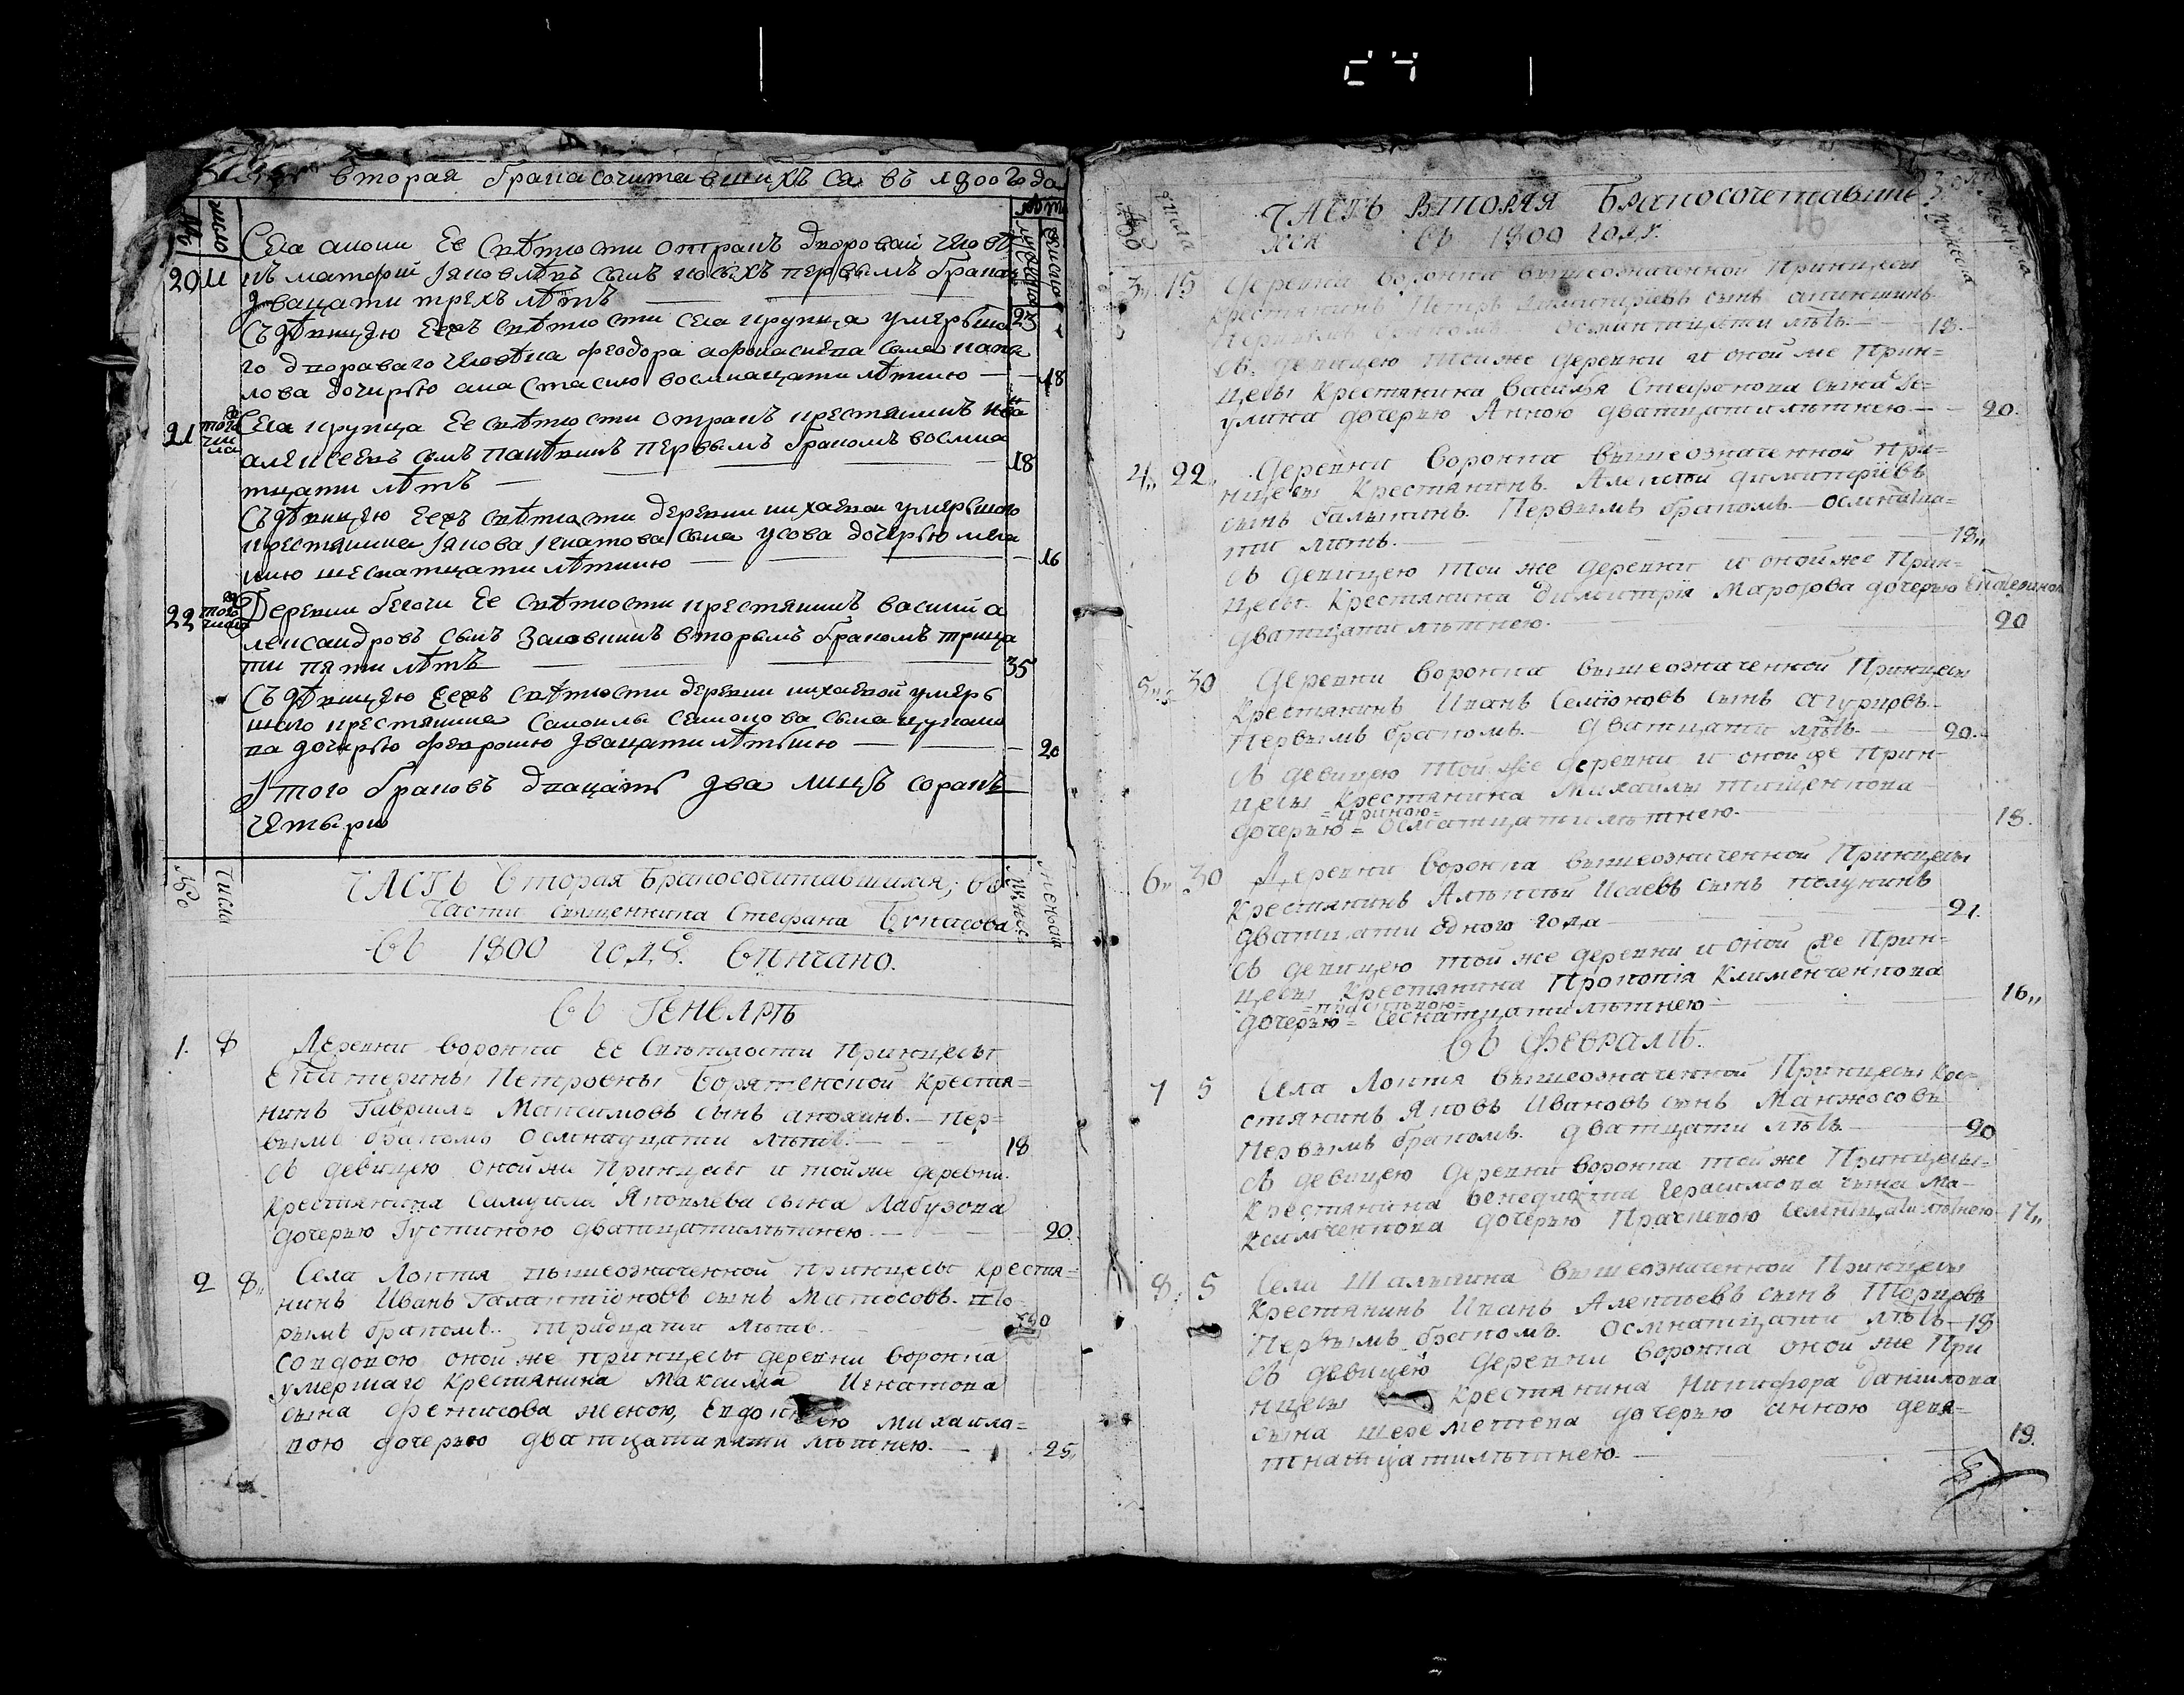 вторая брака сочитавшихъ са въ 1800 года
число
20 11 Села Ее свѣтлости отракъ дворовай челове
къ матфѣй яковлѣвъ сынъ первымъ бракомъ
двацати трехъ лѣтъ 23
Съ дѣвицею Ееже свѣтлости села крупца умершаго
го двороваго человѣка феодора афонасиева сына
лова дочирью анастасиею восмнацати лѣтнию 18
21 того числа Села крупца Ее свѣтлости отракъ крестянинъ ива
алексеевъ сынъ первымъ бракомъ восмна
тцати лѣтъ 18
Съ дѣвицею Ееже свѣтлости деревни михаевки умершаго
крестянина якова игнатова сына усова дочерью мела
нию шеснатцати лѣтнию 16
22 того числа Деревни бегочи Ее свѣтлости крестянинъ василий а
лександровъ сынъ вторымъ бракомъ трица
ти пяти лѣтъ 35
Съ дѣвицею Ееже свѣтлости деревни михаевой умерь
шаго крестянина самоилы семонова сына
ва дочирью февронию двацати лѣтьнию 20
Итого браковъ двацать два лицъ сорокъ
четыри
№ Числа ЧАСТЬ Вторая Бракосочитавшихся; въ
Части священника Стефана Букасова
въ 1800 годѣ Вѣнчано.
Въ Генварѣ
1. 8 Деревни воронка Ее Свѣтлости Принцесы
Екатерины Петровны Борятенской крестья=
нинъ Гаврилъ Максимовъ сынъ анохинъ. Пер=
вымъ бракомъ осмнадцати лѣтъ. 18
Съ девицею оной же Принцесы и той же деревни.
крестянина Самуила Яковлева сына Лабузова
дочерью Густиною дватцатилѣтнею. 20
2 8,, Села Локтя вышеозначенной принцесы крестья=
нинъ Иванъ Галактионовъ сынъ Матосовъ. вто
рымъ бракомъ. Тридцати лѣтъ.
Совдовою оной же принцесы деревни воронка
умершаго крестянина Максима Игнатова
сына Фенисова женою, Евдокиею Михаило=
вою дочерью дватцатипяти лѣтнею. 25,,
ЧАСТЬ ВТОРАЯ Бракосочетавши
хся въ 1800 годѣ. 16
3,, 15 Деревни воронка вышеозначенной Принцесы
крестянинъ Петръ Димитриевъ сынъ аникшинъ.
Первымъ бракомъ осмнатцати лѣтъ. 18.
Съ девицею той же деревни и оной же Прин=
цесы крестянина Василья Стефанова сына
улина дочерью Анною дватцатилѣтнею 20.
4,, 22,, Деревни Воронка вышеозначенной При=
нцесы Крестянинъ Алексѣй Димитриевъ
сынъ балыкинъ. Первымъ бракомъ. осмнатца=
ти лѣтъ. 18,,
Съ девицею той же деревни и оной же Прин=
цесы. Крестянина Димитрия Марозова дочерью Екатериною
дватцати лѣтнею. 20
5,, 30 Деревни воронка вышеозначенной Принцесы
Крестянинъ Иванъ Семионовъ сынъ агурковъ.
Первымъ бракомъ. дватцати лѣтъ. 20.
Съ девицею той же деревни и оной же Прин
цесы Крестянина Михаилы тищенкова
=ириною=
дочерью = осмнатцати лѣтнею. 18.
6,, 30 Деревни Воронка вышеозначенной Принцесы
Крестянинъ Алексѣй Исаевъ сынъ полунинъ
дватцати одного года 21.
Съ девицею той же деревни и оной же Прин=
цесы Крестянина Прокопия Клименченкова
дочерью = шеснатцатилѣтнею 16,,
Въ Февралѣ.
7 5 Села Локтя вышеозначенной Принцесы кре=
стянинъ Яковъ Ивановъ сынъ Манжосовъ
Первымъ бракомъ. дватцати лѣтъ 20
Съ девицею Деревни воронка той же Принцесы=
крестянина Венедикта Герасимова сына Ма=
ксимченкова дочерью Прасковою семнатцатилѣтнею 17,,
8,, 5 Села Шалыгина вышеозначенной Принцесы
Крестянинъ Иванъ Алексѣевъ сынъ
Первымъ бракомъ. осмнатцати лѣтъ 18
Съ девицей Деревни Воронка оной же При
нцесы крестянина Никифора Данилова
сына шереметева дочерью анною девя=
тнатцатилѣтнею. 19.